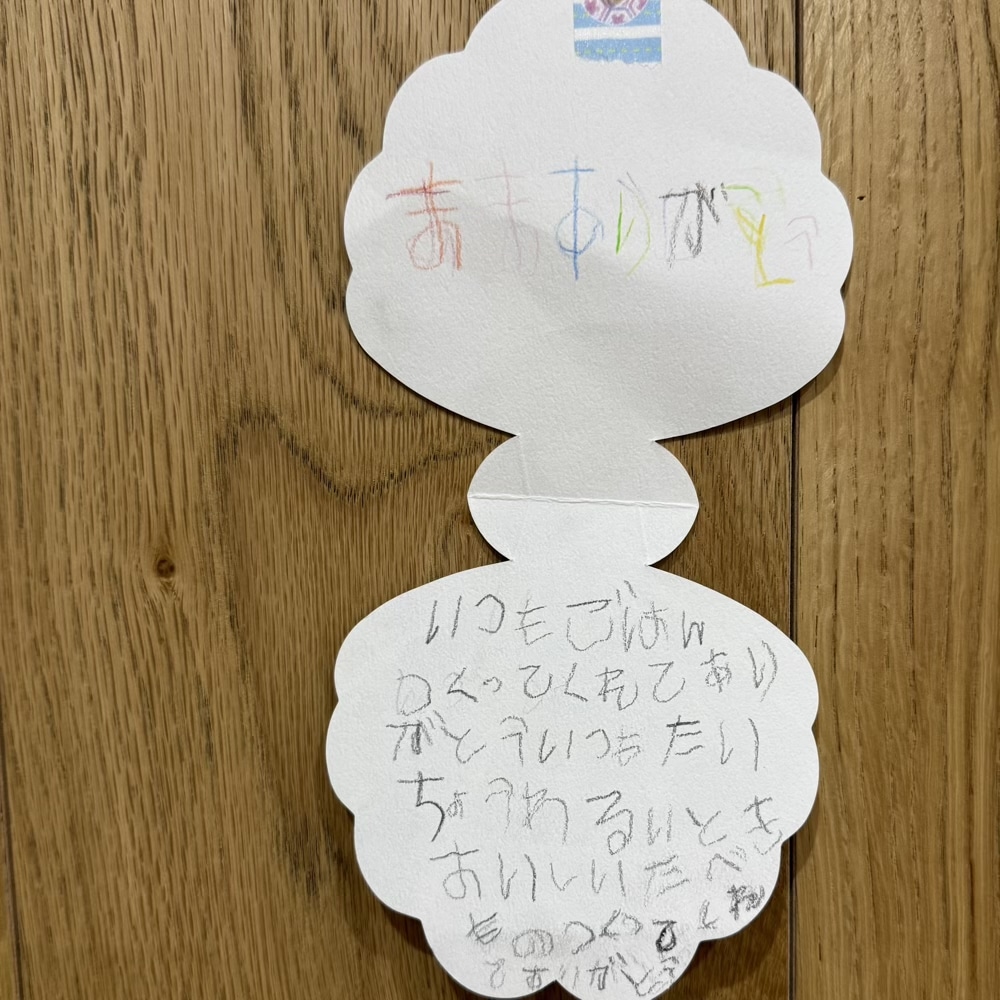 まま ありがとう
いつもごはん
つくってくれてあり
がとういつもたい
ちょうわるいとき
おいしいたべ
ものつくってくれ
てありがとう